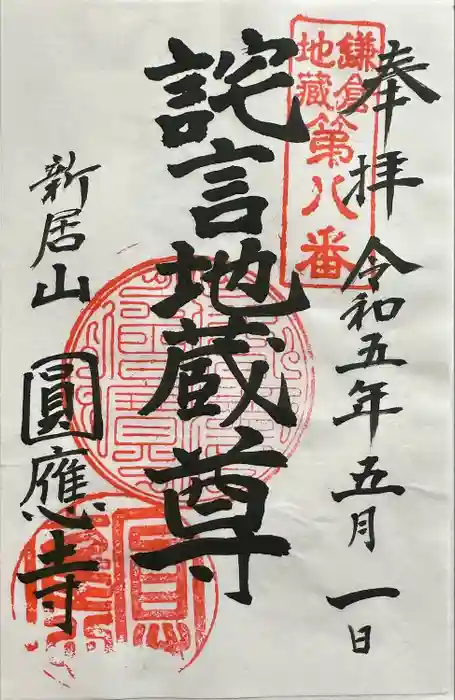 奉拝 令和五年五月一日
鎌倉
地蔵第八番
詫言地蔵尊
新居山 圓應寺